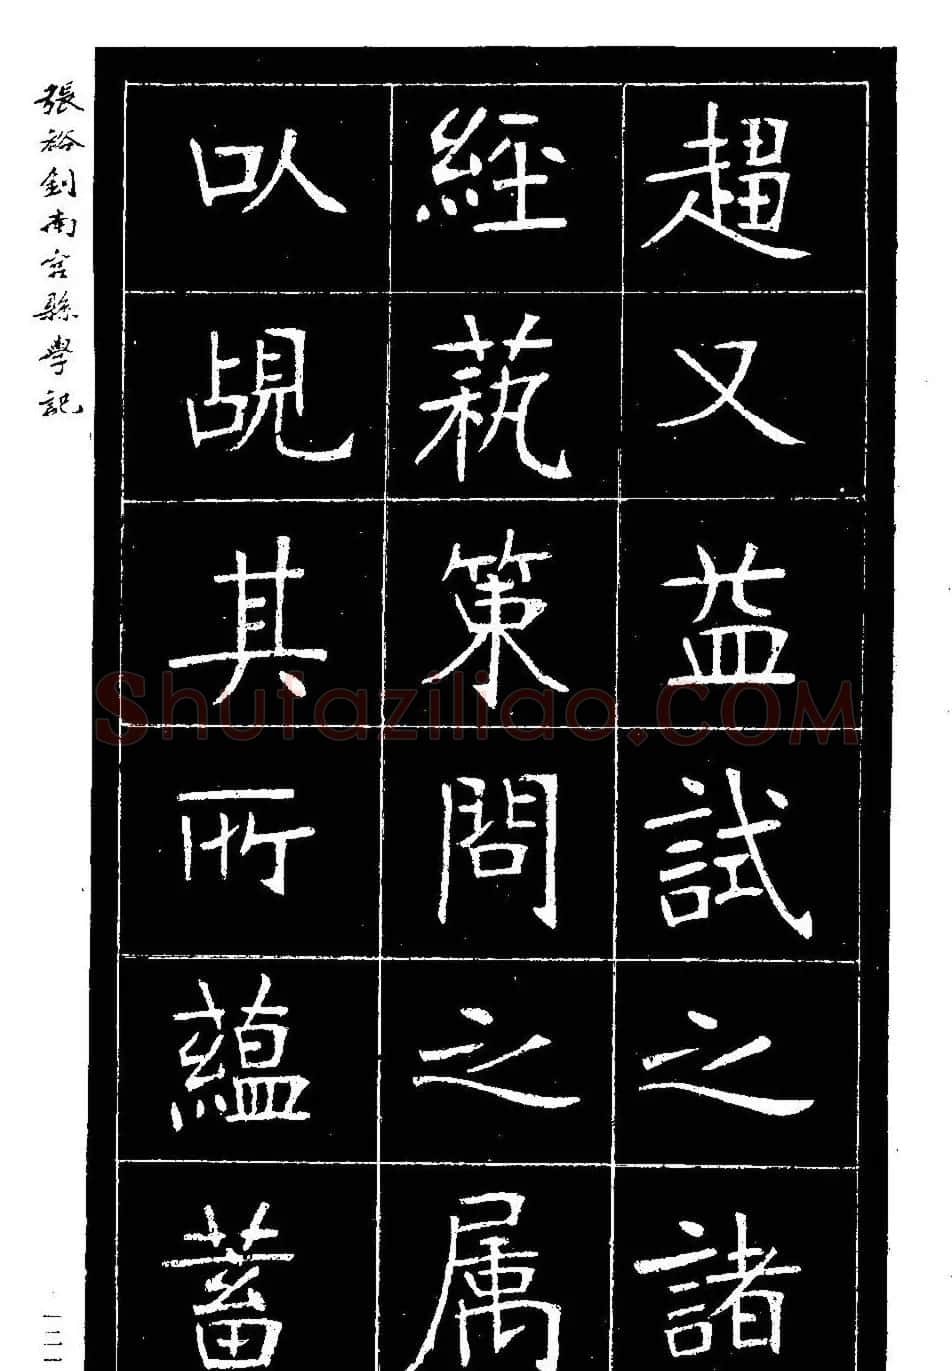 趨又益試之諸
經蓺策問之属
以覘其所蘊蓄
張裕釗南宮縣學記
Shufaziliao.COM